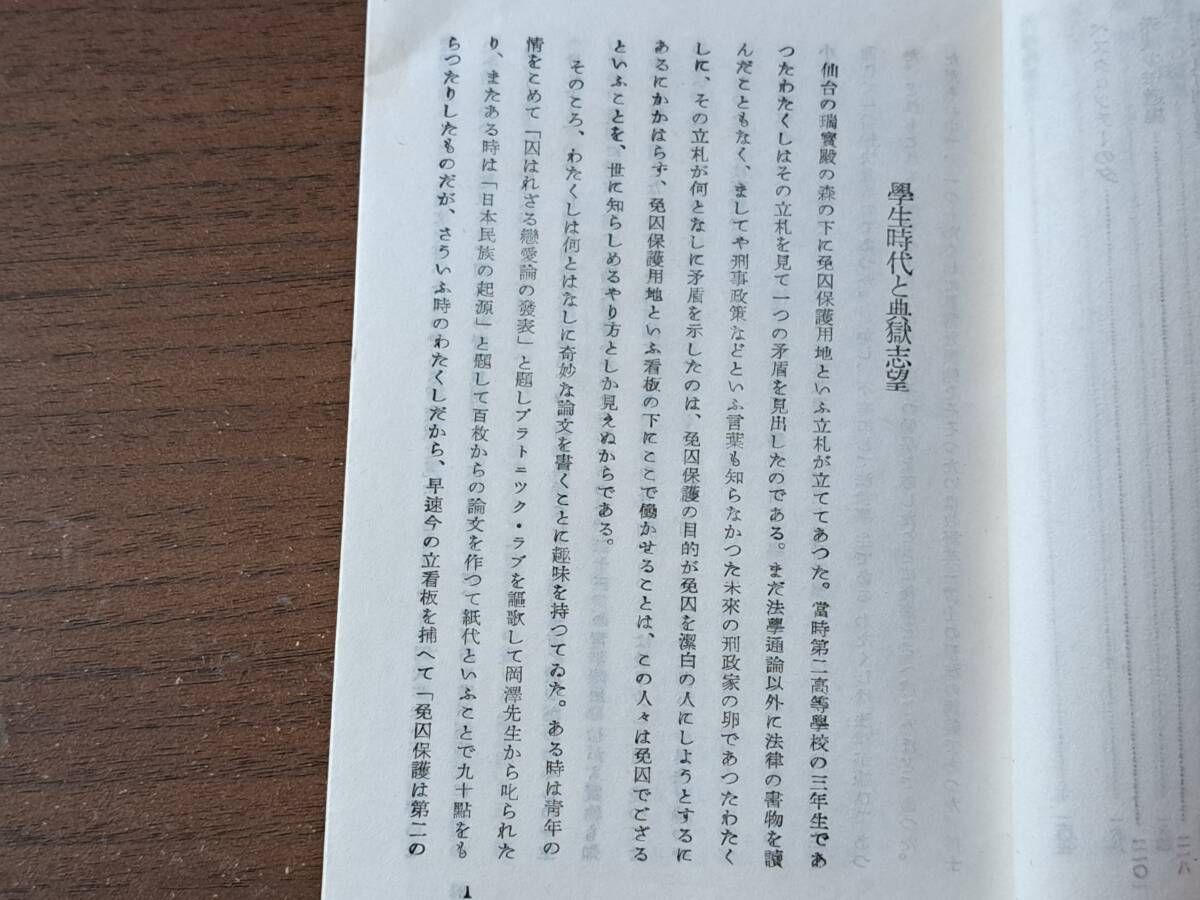 學生時代と典獄志望
小仙台の瑞寶殿の森の下に免囚保護用地といふ立札が立ててあつた。當時第二高等學校の三年生であ
つたわたくしはその立札を見て一つの矛盾を見出したのである。まだ法學通論以外に法律の書物を讀
んだこともなく、ましてや刑事政策などといふ言葉も知らなかつた未來の刑政家の卵であつたわたく
しに、その立札が何となしに矛盾を示したのは、免囚保護の目的が免囚を潔白の人にしようとするに
あるにかかはらず、免囚保護用地といふ看板の下にここで働かせることは、この人々は免囚でござる
といふことを、世に知らしめるやり方としか見えぬからである。
そのころ、わたくしは何とはなしに奇妙な論文を書くことに趣味を持つてゐた。ある時は靑年の
情をこめて「囚はれざる戀愛論の發表」と題しプラトニツク・ラブを謳歌して岡澤先生から叱られた
り、またある時は「日本民族の起源」と題して百枚からの論文を作つて紙代といふことで九十點をも
らつたりしたものだが、さういふ時のわたくしだから、早速今の立看板を捕へて「免囚保護は第二の
1